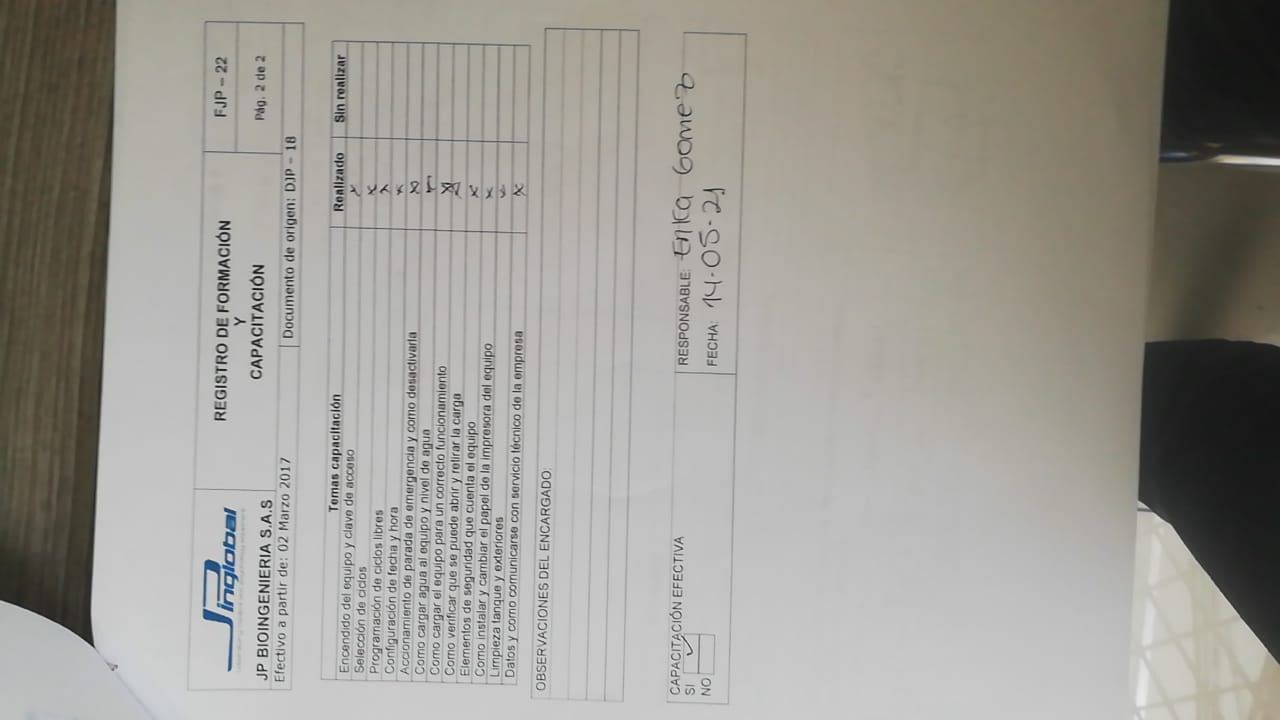 JPinglobal
REGISTRO DE FORMACIÓN
Y
CAPACITACIÓN
FJP – 22
Pág. 2 de 2
JP BIOINGENIERIA S.A.S
Efectivo a partir de: 02 Marzo 2017
Documento de origen: DJP – 18
Temas capacitación Realizado Sin realizar
Encendido del equipo y clave de acceso x
Selección de ciclos x
Programación de ciclos libres x
Configuración de fecha y hora x
Accionamiento de parada de emergencia y como desactivarla x
Como cargar agua al equipo y nivel de agua
Como cargar el equipo para un correcto funcionamiento x
Como verificar que se puede abrir y retirar la carga
Elementos de seguridad que cuenta el equipo x
Como instalar y cambiar el papel de la impresora del equipo x
Limpieza tanque y exteriores x
Datos y como comunicarse con servicio técnico de la empresa x
OBSERVACIONES DEL ENCARGADO:
CAPACITACIÓN EFECTIVA
SI ✓
NO
RESPONSABLE: Erika Gomez
FECHA: 14-05-21